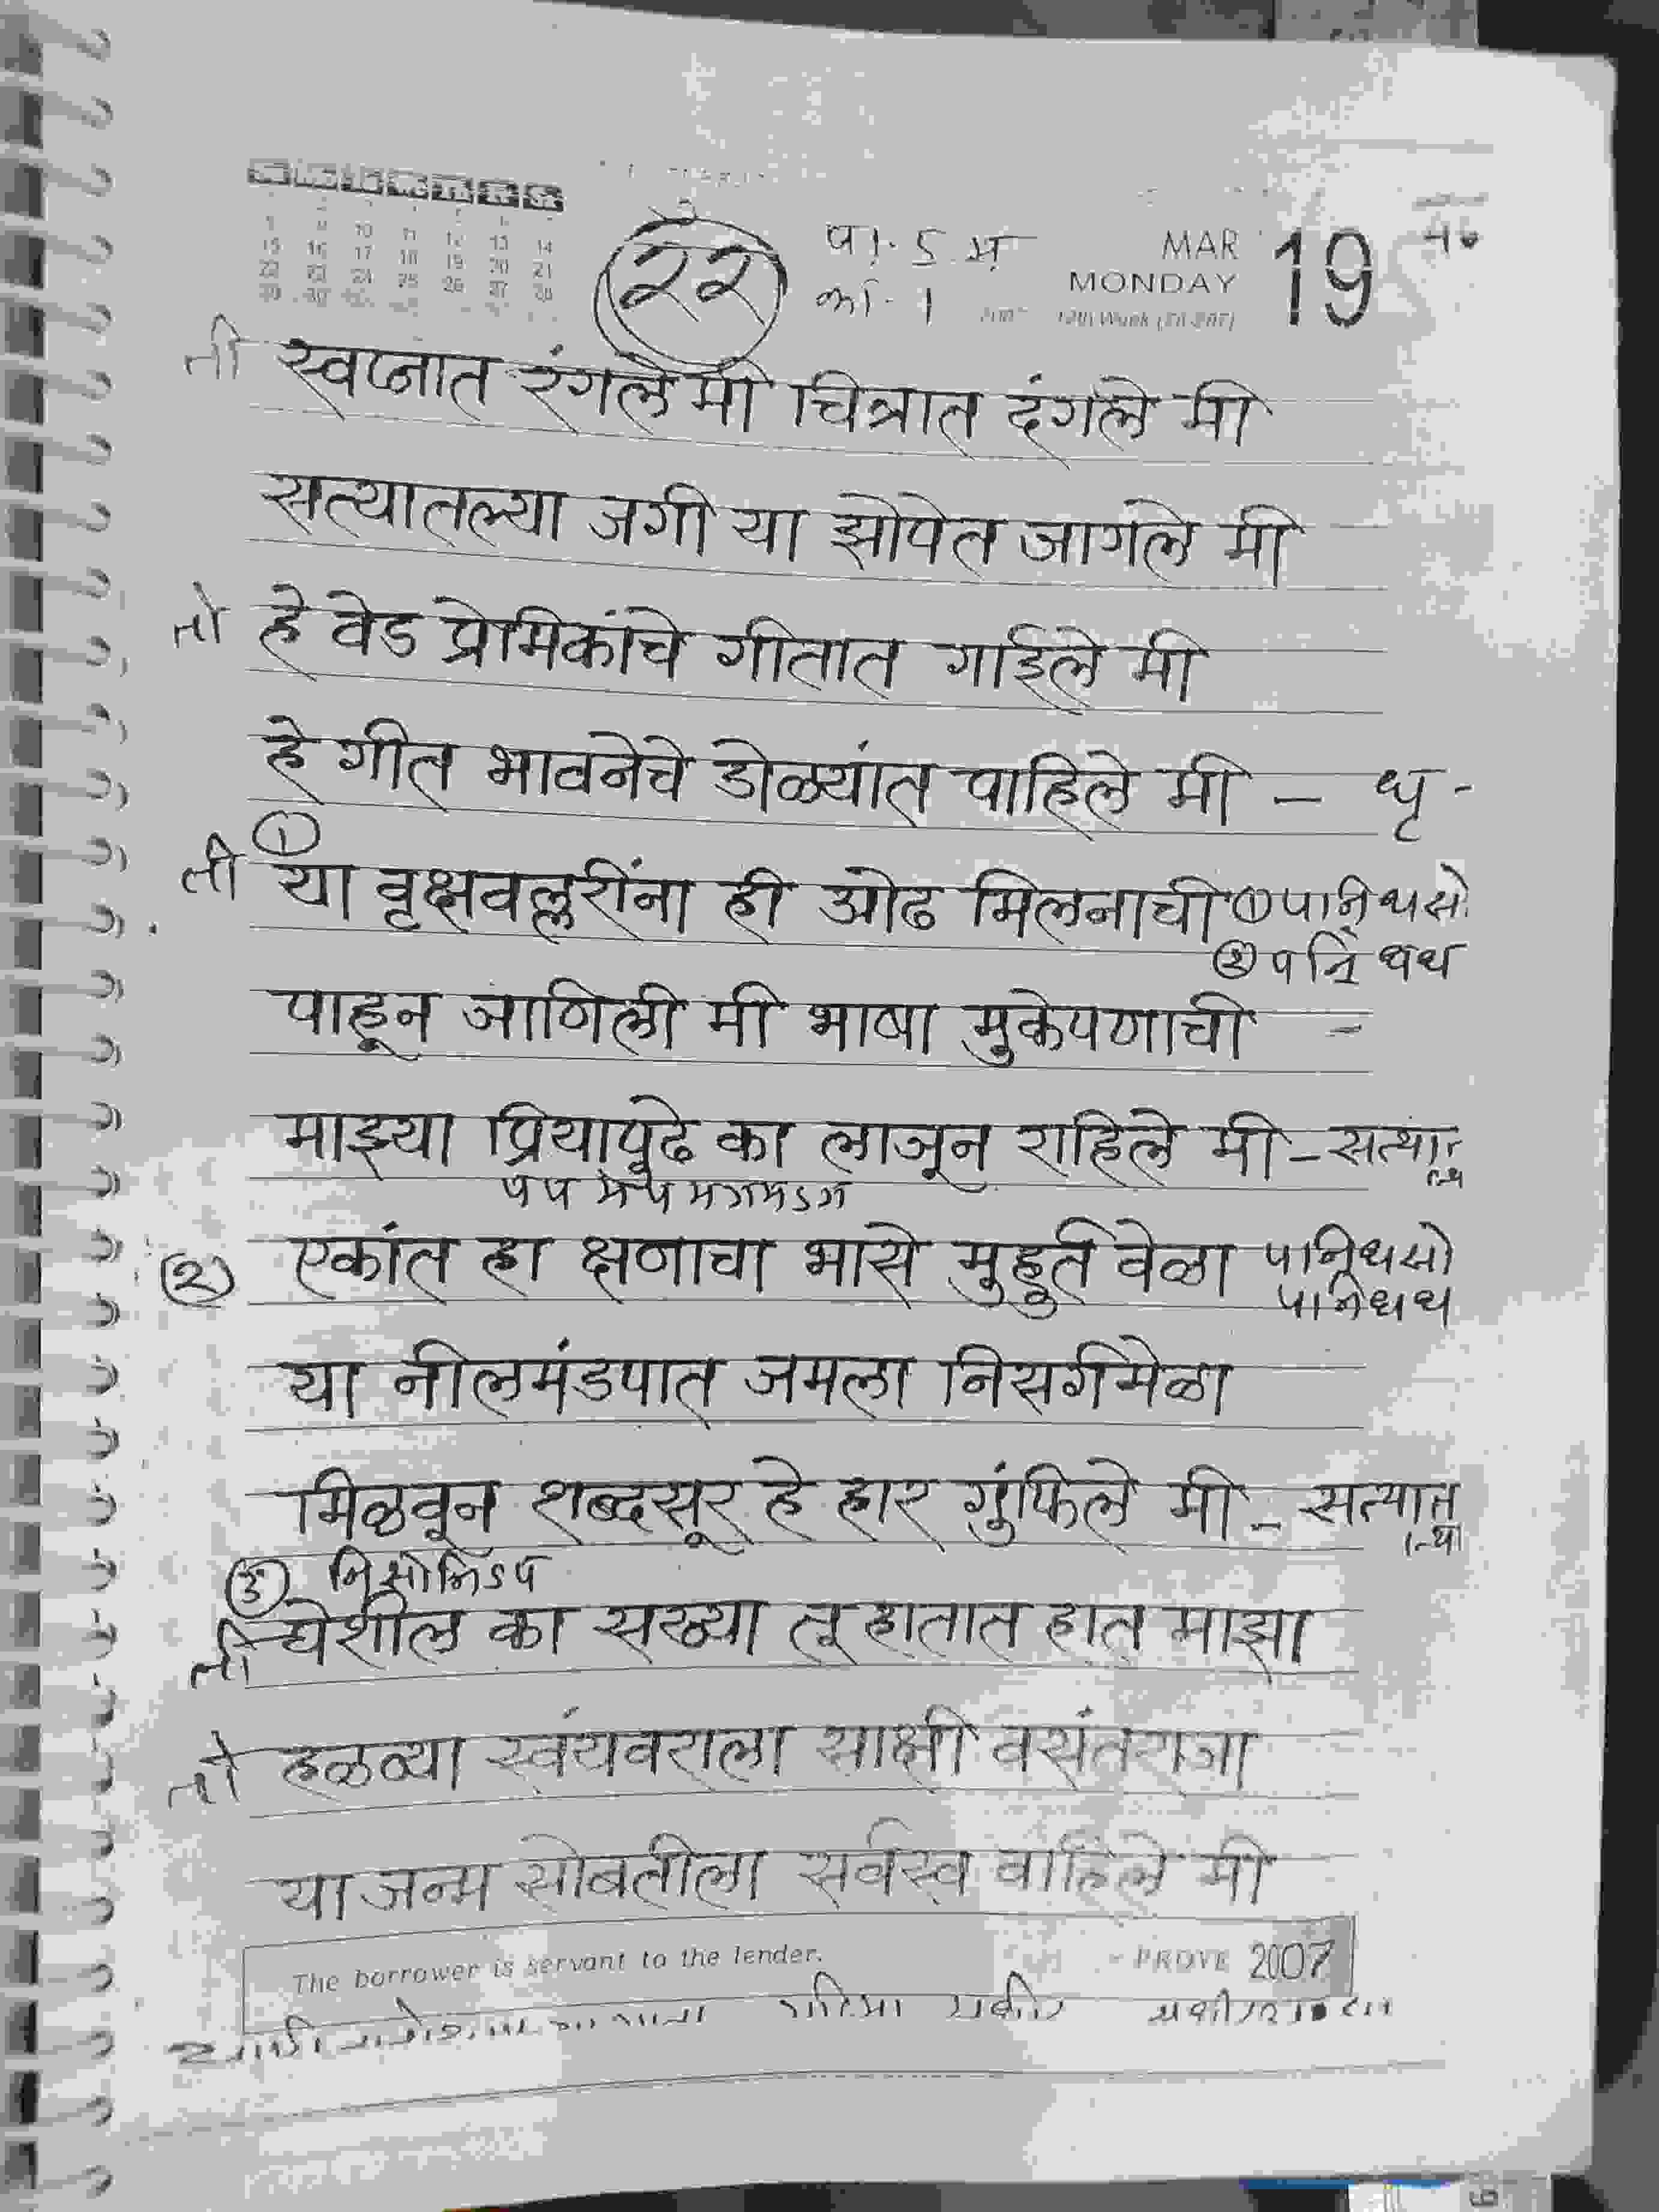 8 9 10 11 12 13 14
15 16 17 18 19 20 21
22 23 24 25 26 27 28
29 30
२२ पा. 5 म MAR 19
का - 1 MONDAY
12th Week
ती स्वप्नात रंगले मी चित्रात दंगले मी
सत्यातल्या जगी या झोपेत जागले मी
तो हे वेड प्रेमिकांचे गीतात गाईले मी
हे गीत भावनेचे डोळ्यांत पाहिले मी – धृ -
①
ती या वृक्षवल्लरींना ही ओढ मिलनाची ① पानि धसो
② प नि धध
पाहून जाणिली मी भाषा मुकेपणाची -
माझ्या प्रियापुढे का लाजून राहिले मी – सत्यात
② एकांत हा क्षणाचा भासे मुहूर्त वेळा पानिधसो
पानिधध
या नीलमंडपात जमला निसर्गमेळा
मिळवून शब्दसूर हे हार गुंफिले मी – सत्यात
③ निसोनि5प
ती घेशील का सख्या तू हातात हात माझा
तो हळव्या स्वंयवराला साक्षी वसंतराजा
या जन्म सोबतीला सर्वस्व वाहिले मी
The borrower is servant to the lender. PROVE 2007